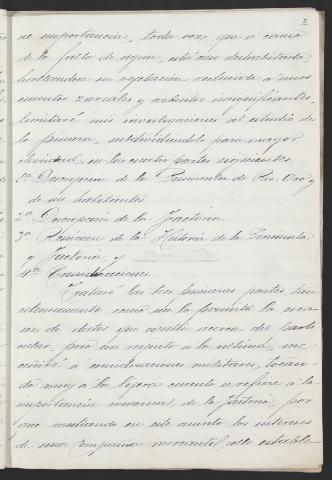 2
de importancia, toda vez, que á causa
de la falta de agua, está casi deshabitada,
hallandose su vejetacion reducida á unos
cuantos zarzales y arbustos insignificantes,
limitaré mis investigaciones al estudio de
la primera, subdividiéndola para mayor
claridad en las cuatro partes siguientes.
1ª Descripcion de la Peninsula de Rio Oro y
de sus habitantes.
2ª Descripcion de la Factoria.
3ª Resúmen de la Historia de la Peninsula
y Factoria, y
4ª Consideraciones.
Trataré las tres primeras partes tan
estensamente como me lo permita la esca-
sez de datos que existen acerca del parti-
cular, pero con respecto á la última, me
ceñiré á consideraciones militares, tocan-
do muy á la lijera cuanto se refiere á la
importancia comercial de la Factoria, por
que mediando en este asunto los intereses
de una Compañia mercantil, allí estable-